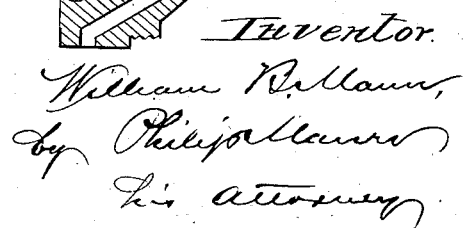 Inventor.
William B. Mann,
by Philip Mauro
his Attorney